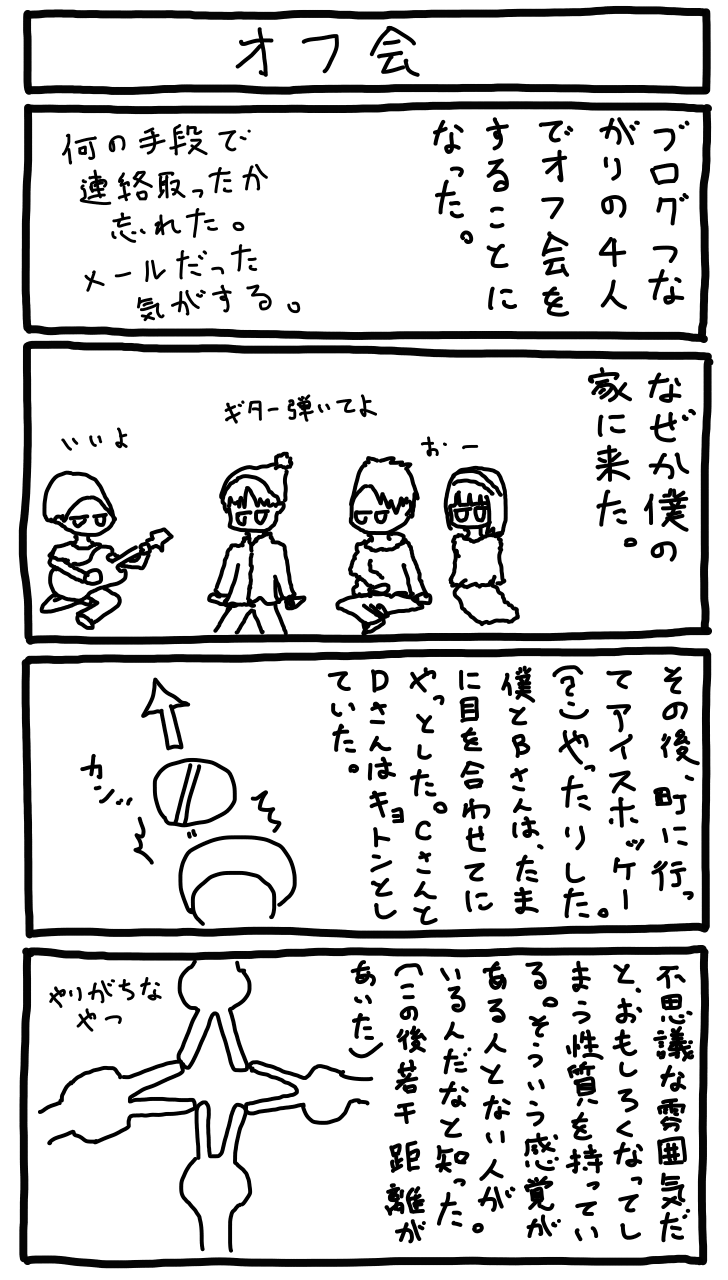 オフ会
ブログつな
がりの4人
でオフ会を
することに
なった。
何の手段で
連絡取ったか
忘れた。
メールだった
気がする。
なぜか僕の
家に来た。
お・ー
ギター弾いてよ
いいよ
その後、町に行っ
てアイスホッケー
(?)やったりした。
僕とBさんは、たま
に目を合わせてに
やっとした。Cさんと
Dさんはキョトンとし
ていた。
カン‥
不思議な雰囲気だ
と、おもしろくなってし
まう性質を持ってい
る。そういう感覚が
ある人とない人が
いるんだなと知った。
(この後若干距離が
あいた)
やりがちな
やつ